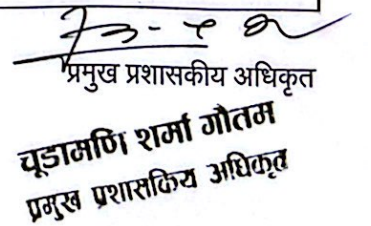 प्रमुख प्रशासकीय अधिकृत
चूडामणि शर्मा गौतम
प्रमुख प्रशासकिय अधिकृत